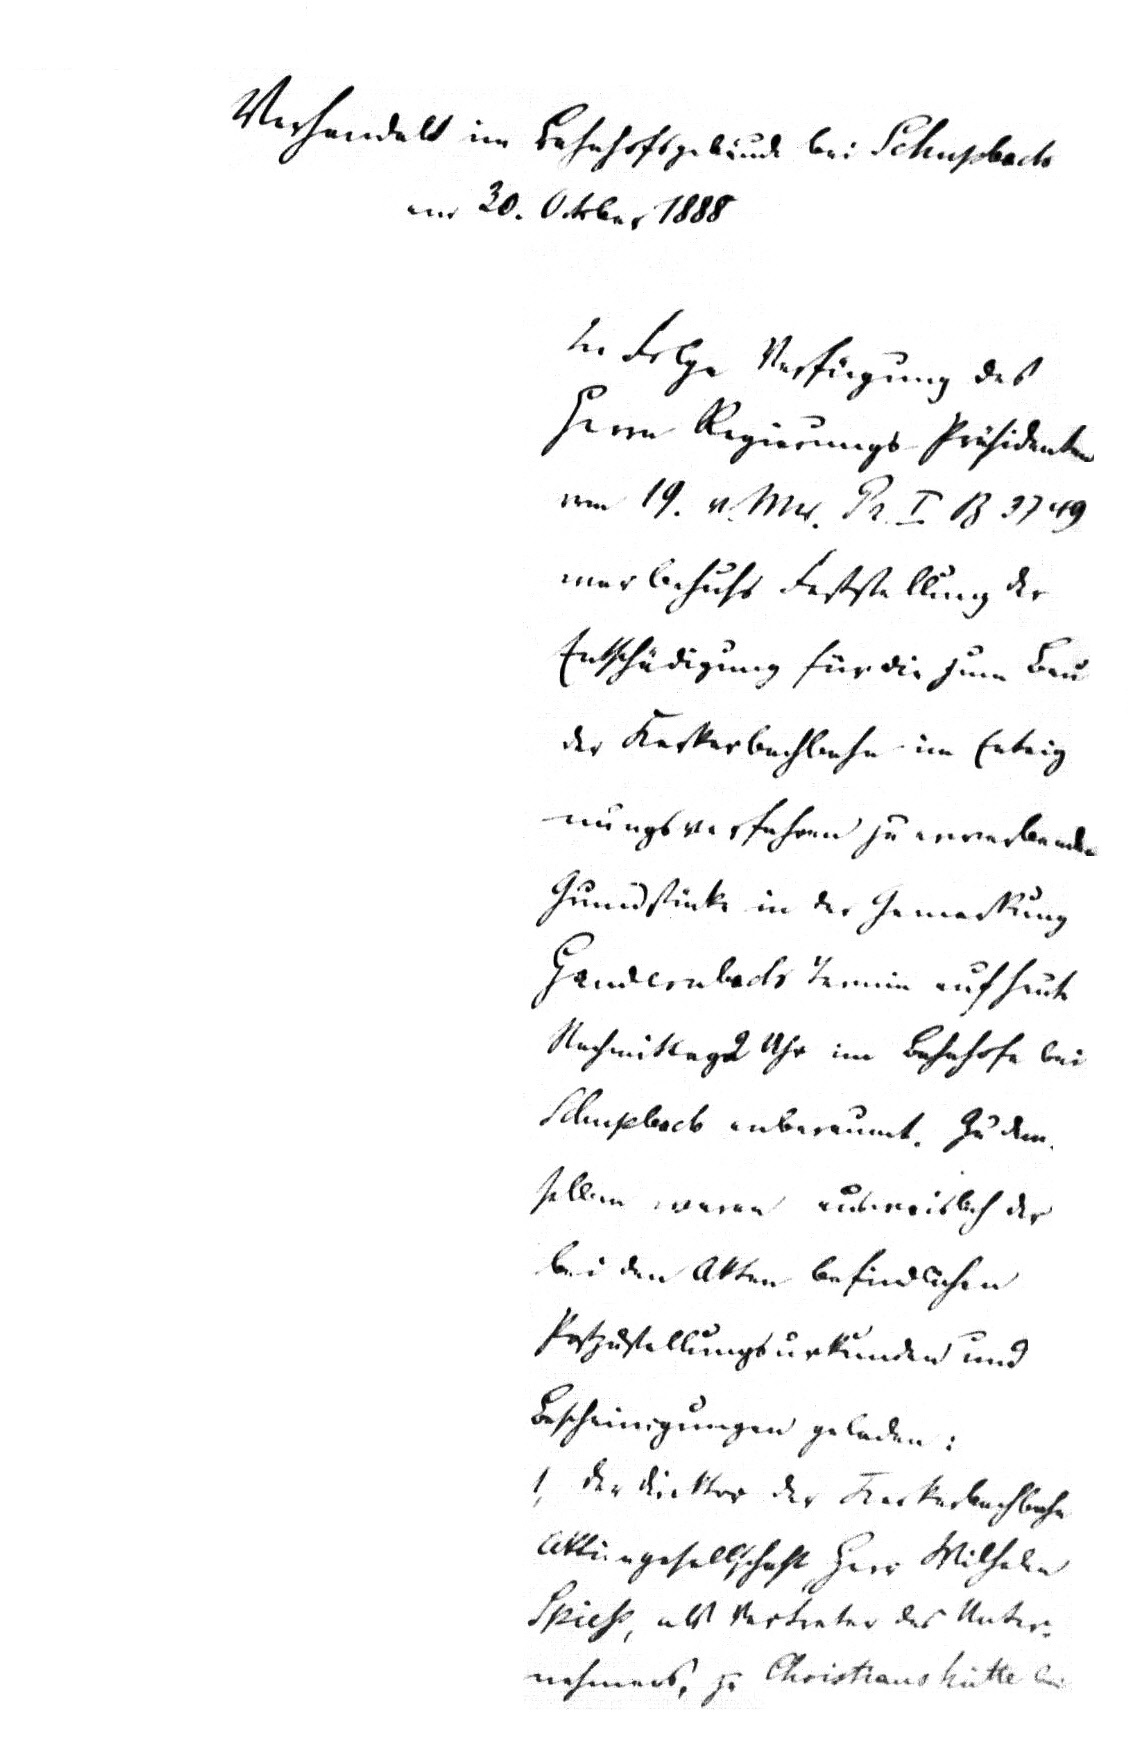 Verhandelt im Bahnhofsgebäude bei Schupbach
am 30. October 1888
In Folge Verfügung des
Herrn Regierungs Präsidenten
vom 19. v. Mts. Pr. I B 3749
war behufs Feststellung der
Entschädigung für die zum Bau
der Kerkerbachbahn im Enteig
nungsverfahren zu erwerbenden
Grundstücke in der Gemarkung
Gaudernbach Termin auf heute
Nachmittag 2 Uhr im Bahnhofe bei
Schupbach anberaumt. Zu dem-
selben waren ausweislich der
bei den Akten befindlichen
Postzustellungsurkunden und
Bescheinigungen geladen:
1, der Direktor der Kerkerbachbahn
Aktiengesellschaft Herr Wilhelm
Spieß, als Vertreter des Unter-
nehmers, zu Christianshütte bei